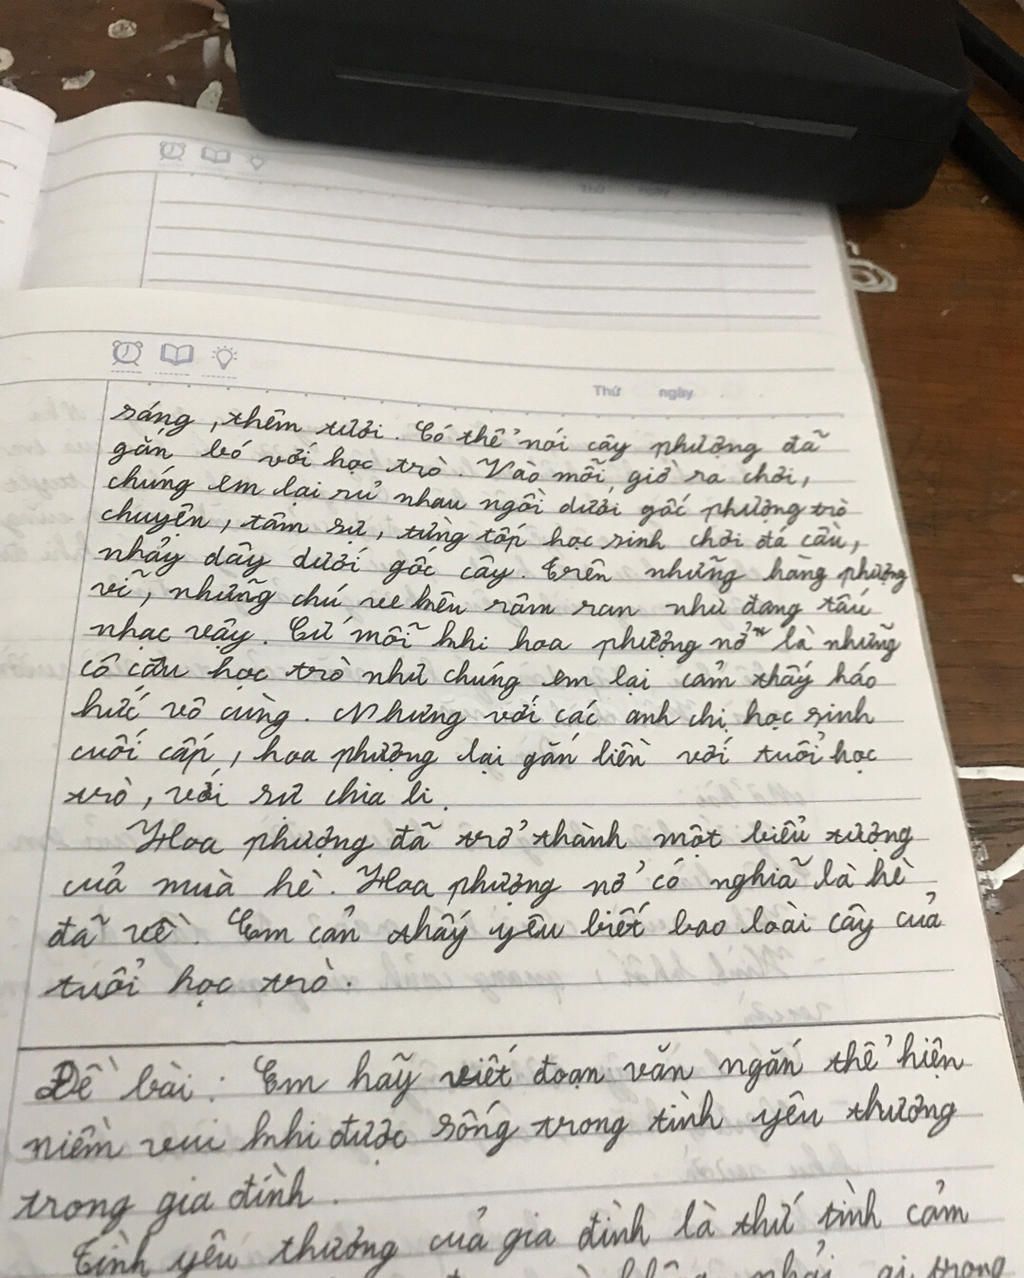 Thứ ngày
Thứ ngày
sáng, thêm tươi. Có thể nói cây phượng đã
gắn bó với học trò. Vào mỗi giờ ra chơi,
chúng em lại rủ nhau ngồi dưới gốc phượng trò
chuyện, tâm sự, từng tốp học sinh chơi đá cầu,
nhảy dây dưới gốc cây. Trên những hàng phượng
vĩ, những chú ve kêu râm ran như đang tấu
nhạc vậy. Cứ mỗi khi hoa phượng nở là những
cô cậu học trò như chúng em lại cảm thấy háo
hức vô cùng. Nhưng với các anh chị học sinh
cuối cấp, hoa phượng lại gắn liền với tuổi học
trò, với sự chia li.
Hoa phượng đã trở thành một biểu tượng
của mùa hè. Hoa phượng nở có nghĩa là hè
đã về. Em cản thấy yêu biết bao loài cây của
tuổi học trò.
Đề bài: Em hãy viết đoạn văn ngắn thể hiện
niềm vui khi được sống trong tình yêu thương
trong gia đình.
Tình yêu thương của gia đình là thứ tình cảm
phải ai trong